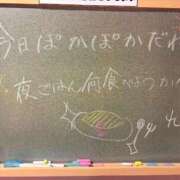 今日ぽかぽかだね
夜ごはん何食べよっかな